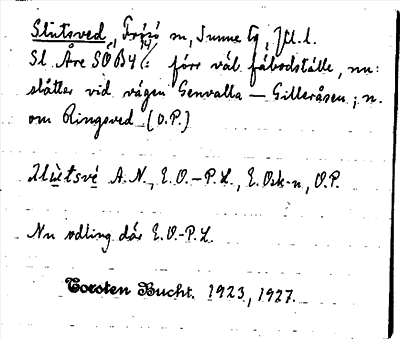 Slutsved, Frösö sn, Sunne tg, Jtl. l.
Sl. Åre SÖ B4 14/: förr väl fäbodställe, nu
slåtter vid vägen Genvalla — Gilleråsen; n.
om Ringsved (O.P.)
A.N., E.O.-P.L., E. Osk-n, O.P.
Nu odling där E.O.-P.L.
Torsten Bucht. 1923, 1927.